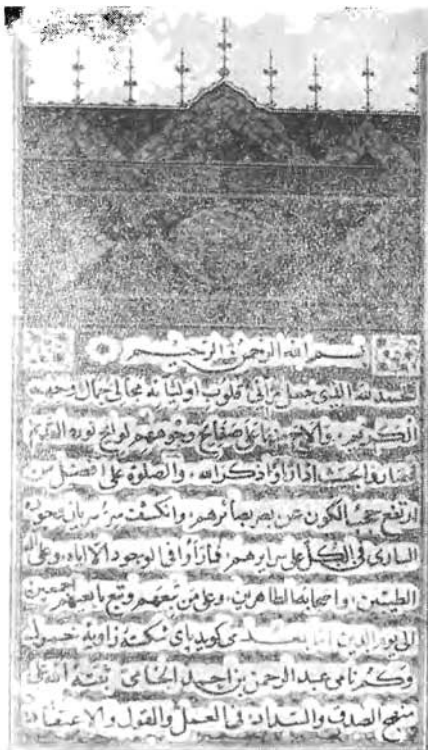 بسم الله الرحمن الرحيم
الحمد لله الذی جعل مرائی قلوب اولیائه مجالی جمال وجهه
الکریم والاح منها علی صفایح وجوههم لوایح نوره القدیم
فصاروا بحیث اذا راوا ذکر الله والصلوة علی افضل من
ارتفع حجب الکون عن بصر بصائرهم وانکشف سر سریان وجوده
الساری فی الکل علی سرایرهم فما راوا فی الوجود الا ایاه وعلی اله
الطیبین واصحابه الطاهرین وعلی من تبعهم وتبع تابعیهم اجمعین
الی یوم الدین اما بعد می کوید پای شکسته زاویه خمول
وکم نامی عبد الرحمن بن احمد الجامی ثبته الله علی
منهج الصدق والسداد فی العمل والقول والاعتقاد